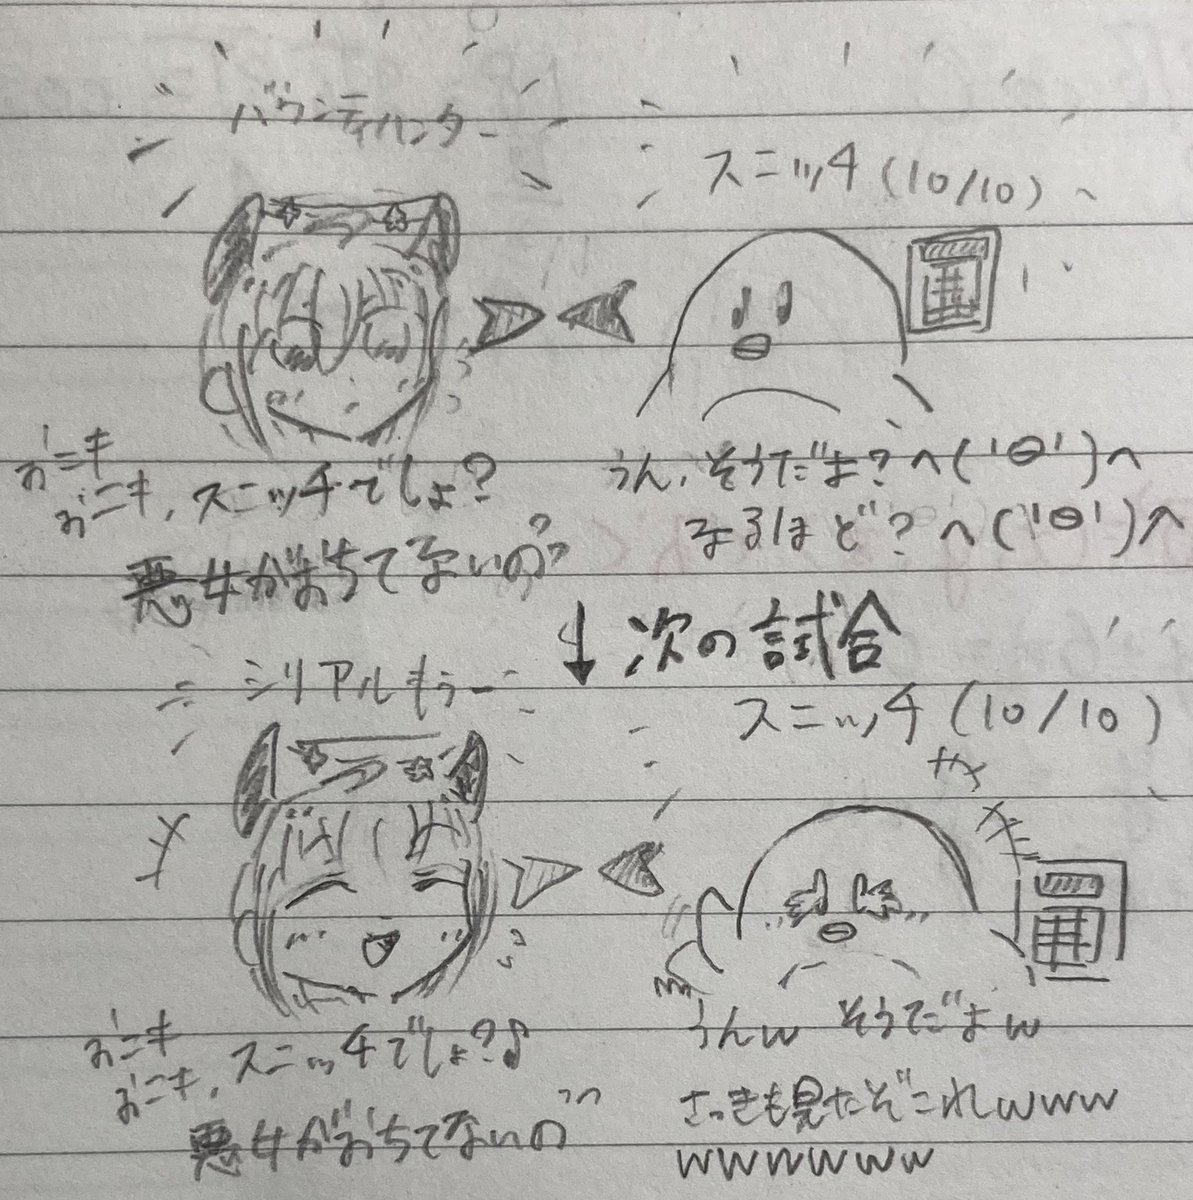 バウンティハンター
スニッチ(10/10)
おニキ
おニキ、スニッチでしょ?
悪女がおちてないの??
うん、そうだよ?ヘ('Θ')ヘ
なるほど?ヘ('Θ')ヘ
↓次の試合
シリアルもぅー
スニッチ(10/10)
おニキ
おニキ、スニッチでしょ?♪
悪女がおちてないの
うんw そうだよw
さっきも見たぞこれwww
wwwwwww